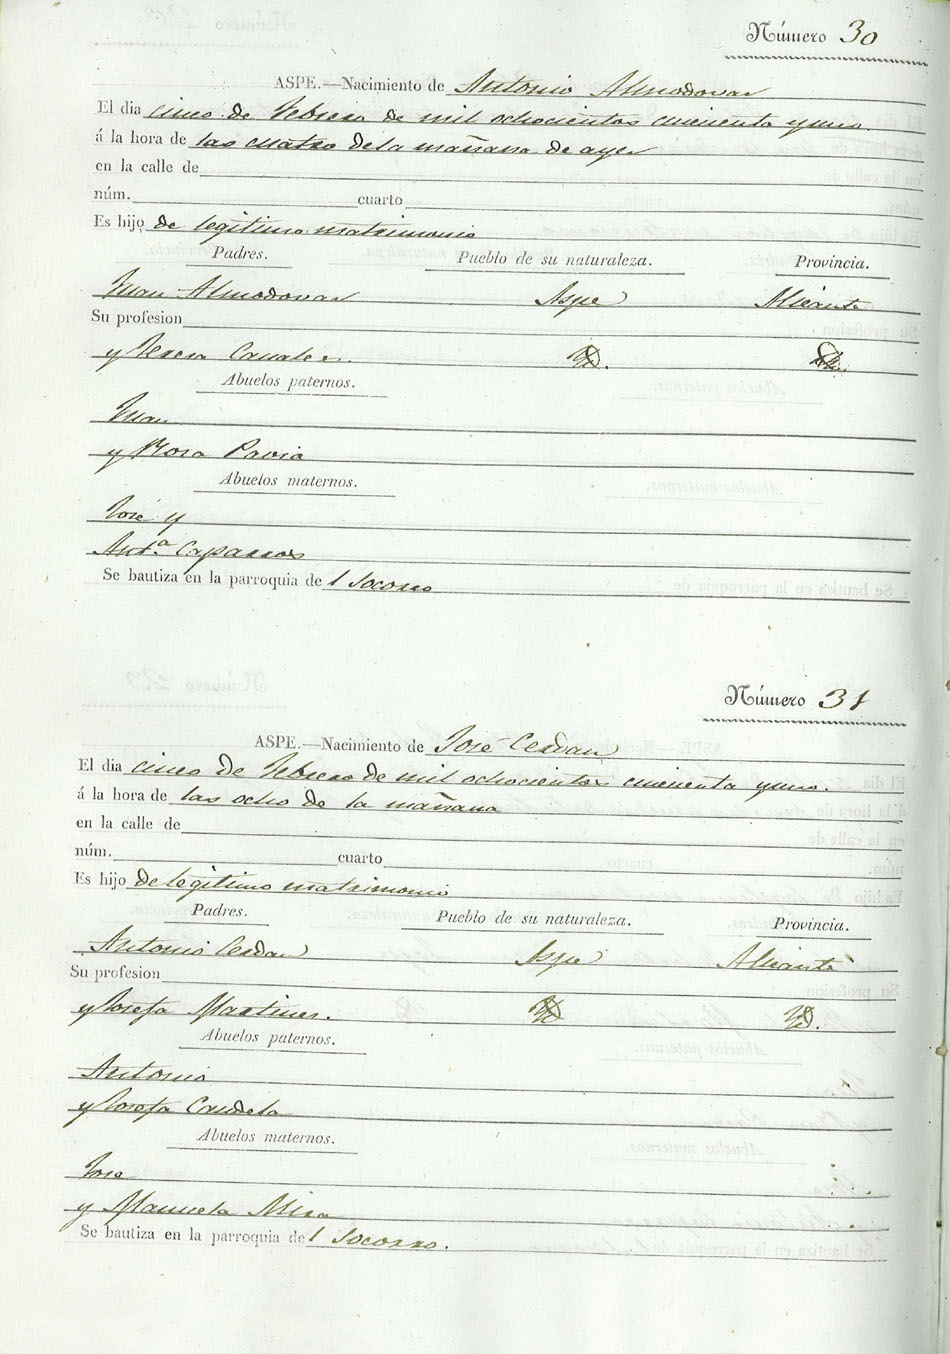 Número 30
ASPE.—Nacimiento de Antonio Almodovar
El dia cinco de Febrero de mil ochocientos cincuenta y uno.
á la hora de las cuatro de la mañana de ayer
en la calle de
núm. cuarto
Es hijo de legitimo matrimonio
Padres. Pueblo de su naturaleza. Provincia.
Juan Almodovar Aspe Alicante
Su profesion
y Teresa Canales. Yd. Yd.
Abuelos paternos.
Juan
y Rosa Pavia
Abuelos maternos.
José y
Ant.ª Caparros
Se bautiza en la parroquia de l Socorro
Número 31
ASPE.—Nacimiento de José Cerdan
El dia cinco de Febrero de mil ochocientos cincuenta y uno.
á la hora de las ocho de la mañana
en la calle de
núm. cuarto
Es hijo de legitimo matrimonio
Padres. Pueblo de su naturaleza. Provincia.
Antonio Cerdan Aspe Alicante
Su profesion
y Josefa Martines. Yd. Yd.
Abuelos paternos.
Antonio
y Josefa Caudela
Abuelos maternos.
Jose
y Manuela Mira
Se bautiza en la parroquia de l Socorro.